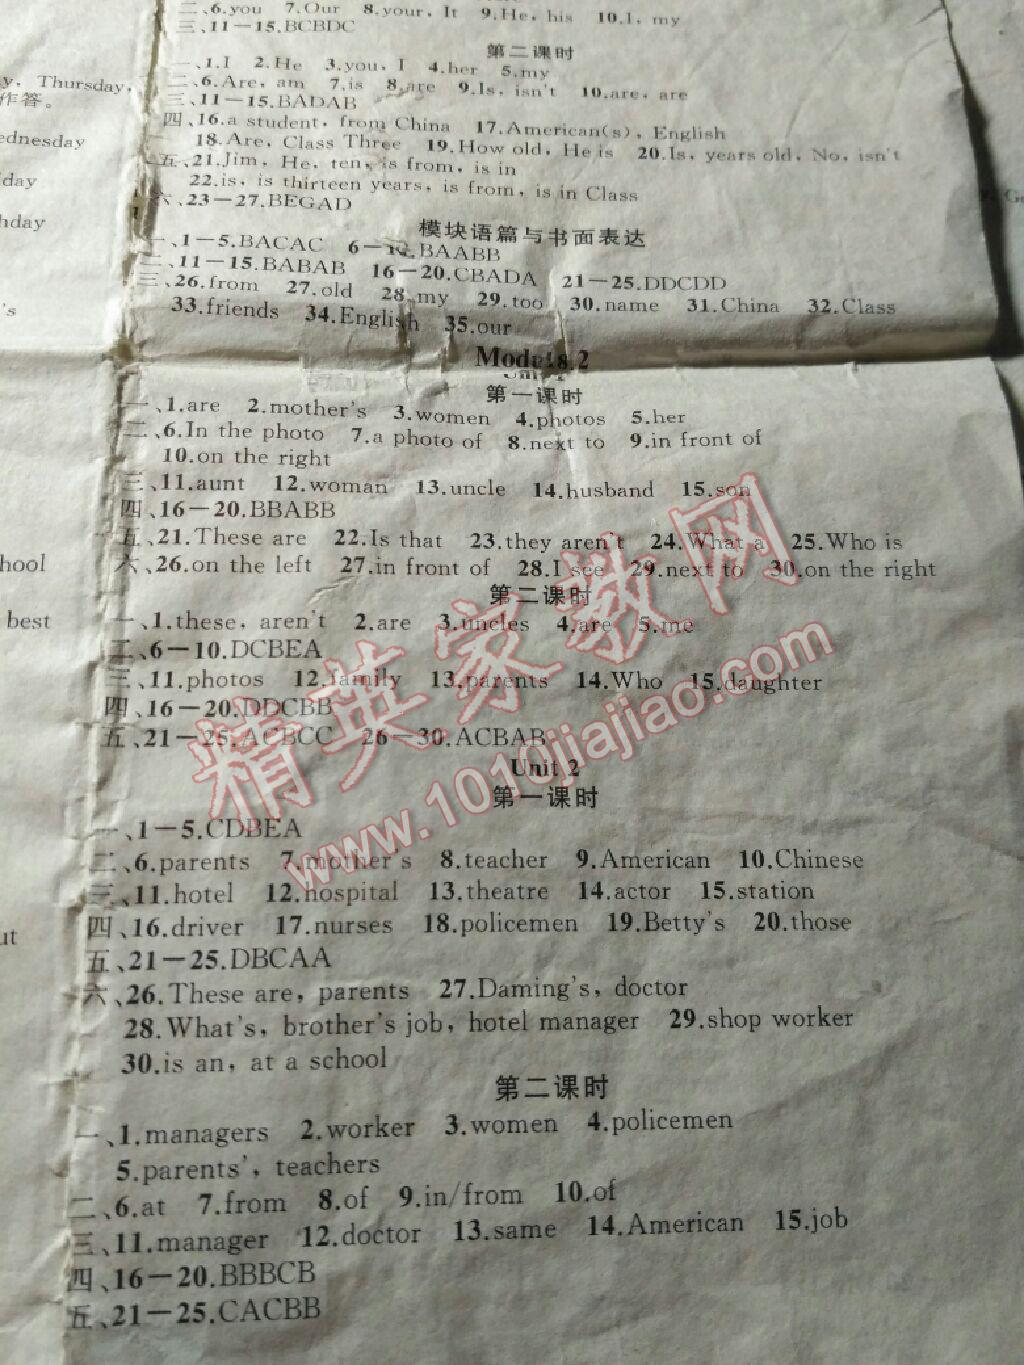 二、6.you 7.Our 8.your, It 9.He, his 10.I, my
三、11－15.BCBDC
第二课时
一、1.I 2.He 3.you, I 4.her 5.my
二、6.Are, am 7.is 8.are 9.Is, isn't 10.are, are
三、11－15.BADAB
四、16.a student, from China 17.American(s), English
18.Are, Class Three 19.How old, He is 20.Is, years old, No, isn't
五、21.Jim, He, ten, is from, is in
22.is, is thirteen years, is from, is in Class
六、23－27.BEGAD
模块语篇与书面表达
一、1－5.BACAC 6－10.BAABB
二、11－15.BABAB 16－20.CBADA 21－25.DDCDD
三、26.from 27.old 28.my 29.too 30.name 31.China 32.Class
33.friends 34.English 35.our
Module 2
第一课时
一、1.are 2.mother's 3.women 4.photos 5.her
二、6.In the photo 7.a photo of 8.next to 9.in front of
10.on the right
三、11.aunt 12.woman 13.uncle 14.husband 15.son
四、16－20.BBABB
五、21.These are 22.Is that 23.they aren't 24.What a 25.Who is
六、26.on the left 27.in front of 28.I see 29.next to 30.on the right
第二课时
一、1.these, aren't 2.are 3.uncles 4.are 5.me
二、6－10.DCBEA
三、11.photos 12.family 13.parents 14.Who 15.daughter
四、16－20.DDCBB
五、21－25.ACBCC 26－30.ACBAB
Unit 2
第一课时
一、1－5.CDBEA
二、6.parents 7.mother's 8.teacher 9.American 10.Chinese
三、11.hotel 12.hospital 13.theatre 14.actor 15.station
四、16.driver 17.nurses 18.policemen 19.Betty's 20.those
五、21－25.DBCAA
六、26.These are, parents 27.Daming's, doctor
28.What's, brother's job, hotel manager 29.shop worker
30.is an, at a school
第二课时
一、1.managers 2.worker 3.women 4.policemen
5.parents', teachers
二、6.at 7.from 8.of 9.in/from 10.of
三、11.manager 12.doctor 13.same 14.American 15.job
四、16－20.BBBCB
五、21－25.CACBB
y, Thursday,
作答。
ednesday
day
hday
's
hool
best
ut
精英家教网
www.1010jiajiao.com